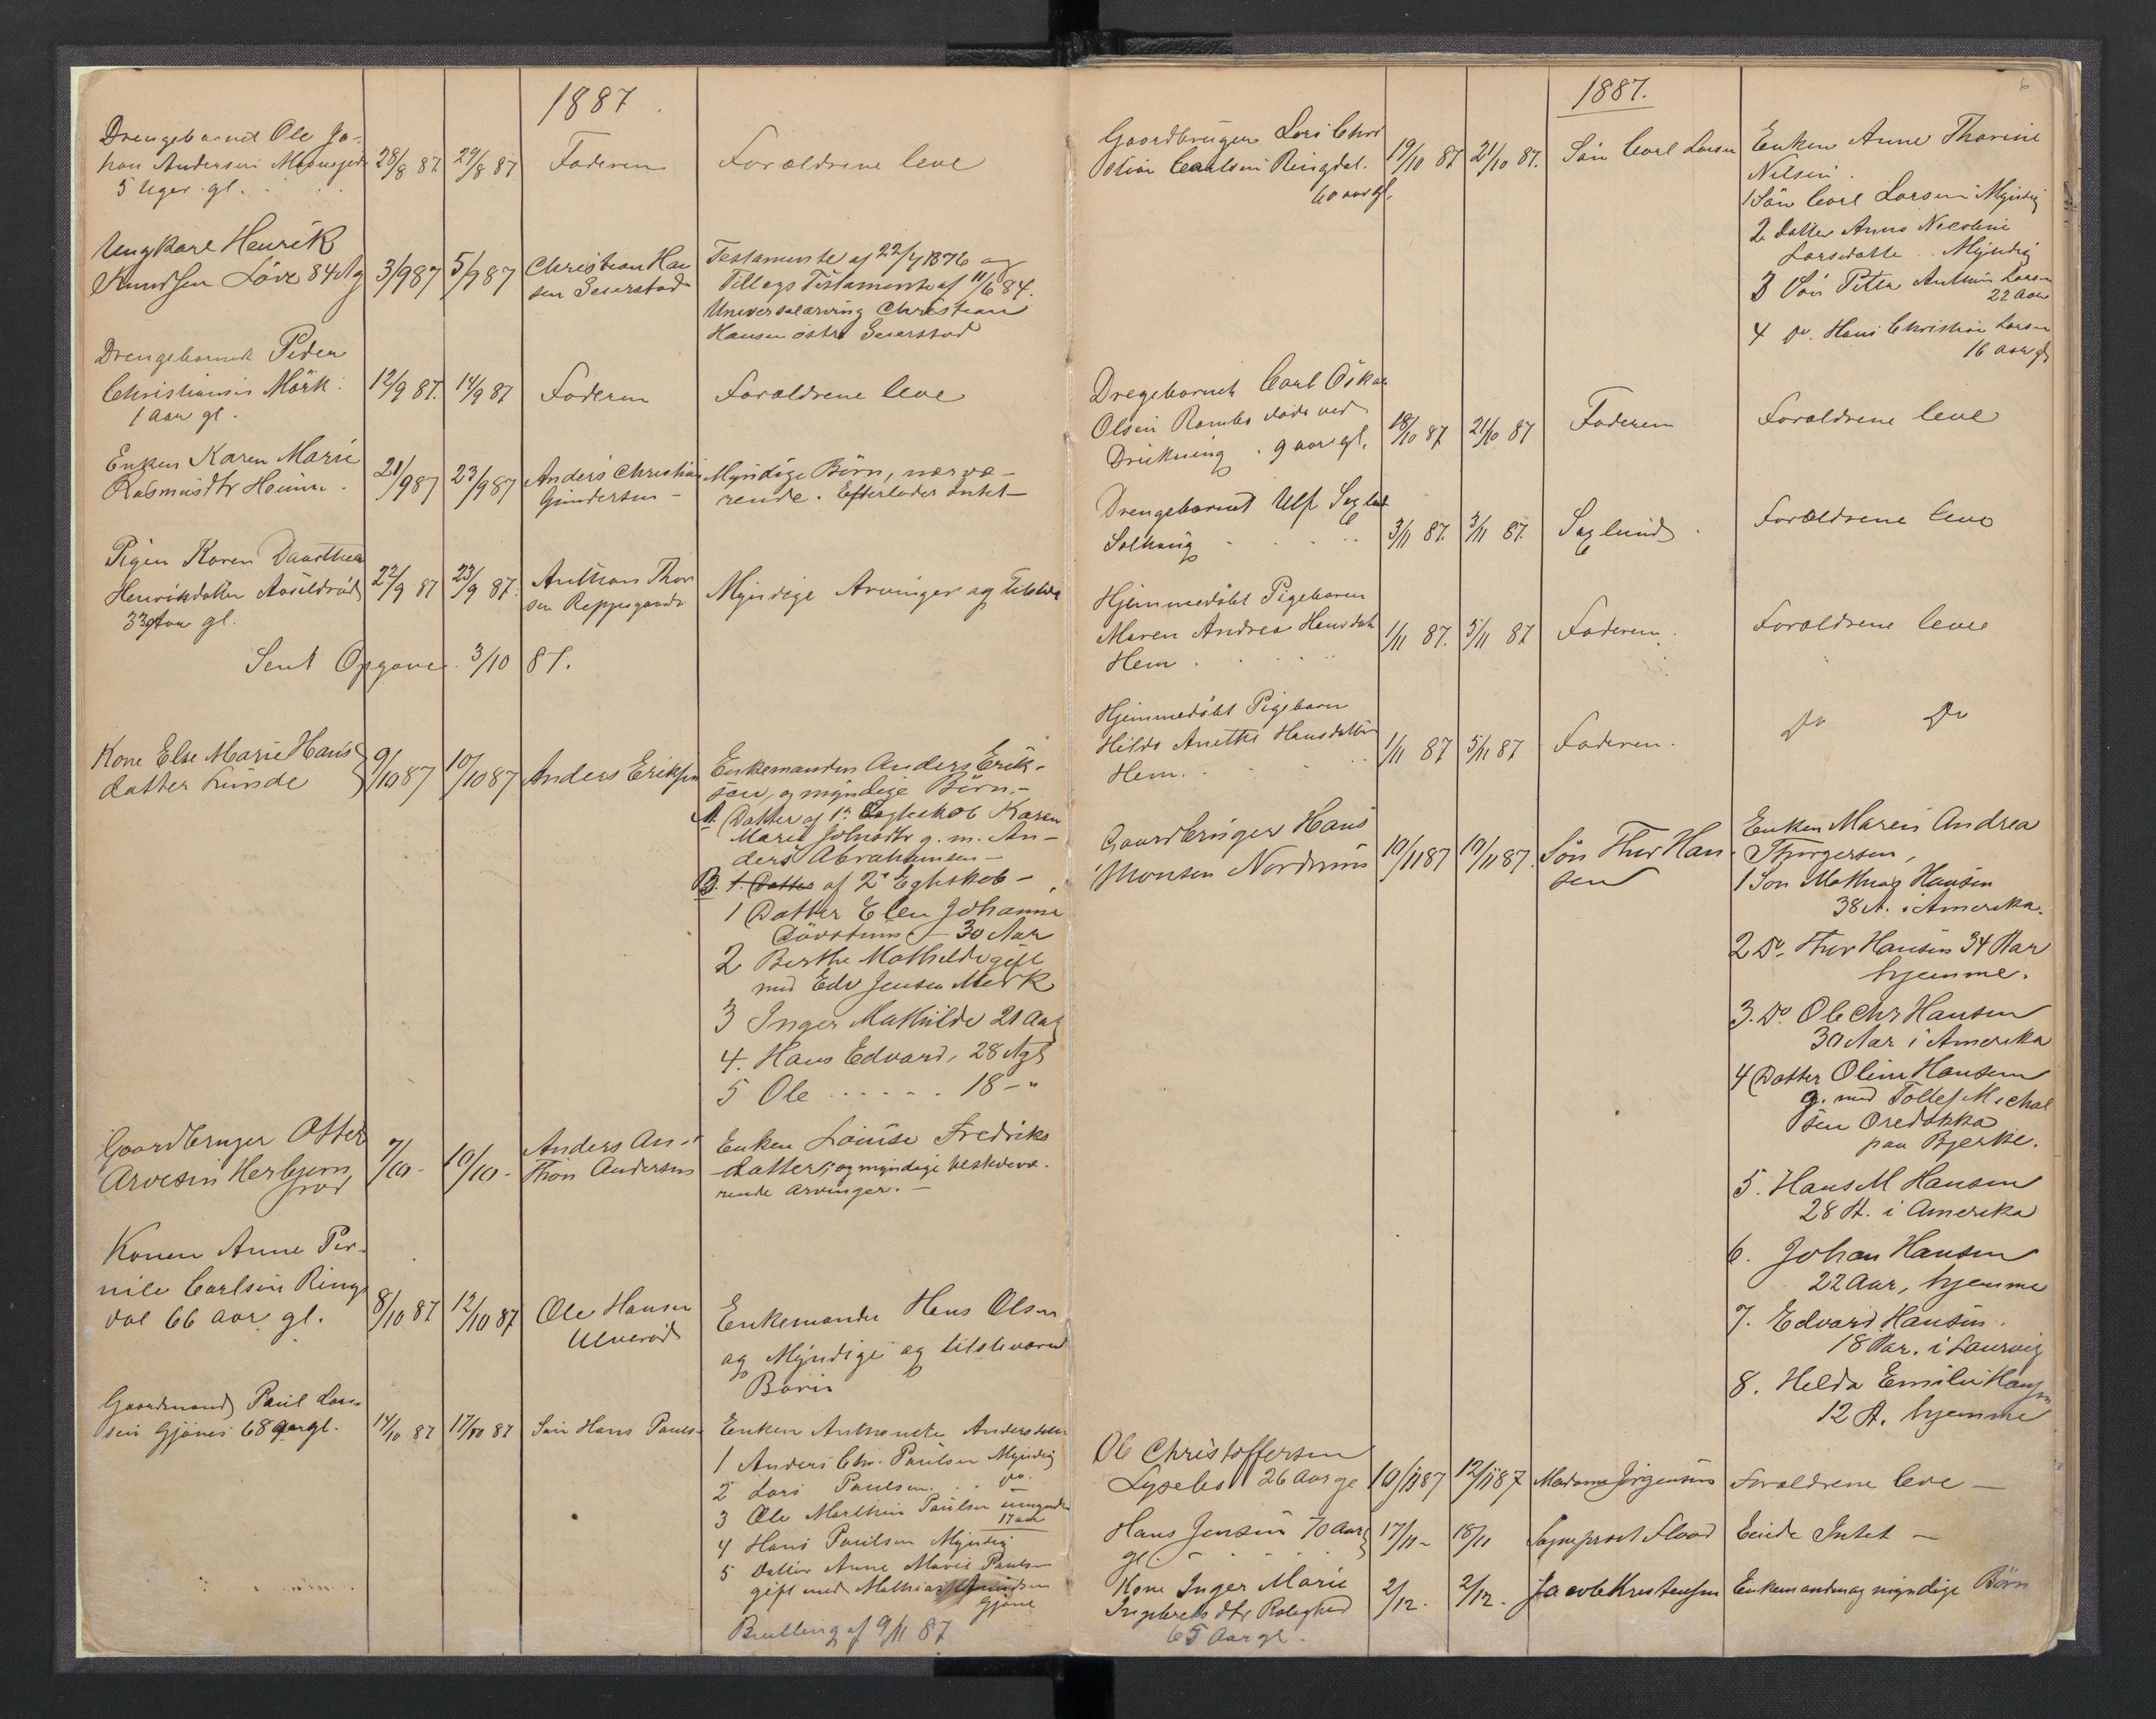 1887
Drengebarnet Ole Jo-
han Andersen
5 Uger gl. 28/8 87. 29/8 87 Faderen Forældrene leve
Ungkarl Henrik
Knudsen Löve 84 Ag 3/9 87 5/9 87 Christian Han
sen Seierstad
Testamente af 22/7 1876 og
Tillegs Testamente af 11/6 84.
Universalarving Christian
Hansen östre Seierstad
Drengebarnet Peder
Christiansen Mörk.
1 Aar gl. 12/9 87. 14/9 87 Faderen Forældrene leve
Enken Karen Marie
Rasmusdtr Heum. 21/9 87 23/9 87 Anders Christian
Gundersen -
Myndige Börn, nærvæ-
rende. Efterlader Intet -
Pigen Karen Daarthea
Henriksdatter
33 Aar gl. 22/9 87 23/9 87. Anthon Thor
sen Reppesgaard
Myndige Arvinger og
Sent Opgave 3/10 87.
Kone Else Marie Hans
datter Lunde 9/10 87 10/10 87 Anders Eriksen
Enkemanden Anders Erik-
sen, og myndige Börn.-
A. Datter af 1ste Egteskab Karen
Marie Johnsdtr g. m. An-
ders Abrahamsen -
B. 1. Datter af 2det Egteskab -
1 Datter Elen Johanne
Dövstum - 30 Aar
2 Berthe Mathilde gift
med Edv Jensen Mörk
3 Inger Mathilde 21 Aar
4. Hans Edvard, 28 Agl
5 Ole . . . . . . 18 - "
Gaardbruger Otter
Arvesen Herbjørns
rød 7/10 - 10/10 - Anders An-
thon Andersen
Enken Louise Fredriks
datter, og myndige
rende arvinger. -
Konen Anne Per-
nile Carlsen Ring
dal 66 aar gl. 8/10 87 12/10 87 Ole Hansen
Ulverød
Enkemanden Hans Olsen
og Myndige og tilstevære
Börn
Gaardmand Paul Lar-
sen Gjönes 68 aar gl. 14/10 87 17/10 87 Sön Hans Pauls.
Enken Anthonette Andersdatter
1 Anders Chr. Paulsen Myndig
2 Lars Paulsen . . do.
3 Ole Marthin Paulsen umyndig
17 aar
4 Hans Paulsen Myndig
5 Datter Anne Marie Paulsen
gift med Mathias Amundsen
Gjöne
af 9/11 87
6
1887.
Gaardbruger Lars Chri
stian Carlsen Ringdal.
60 aar gl. 19/10 87 21/10 87. Sön Carl Larsen
Enken Anne Thorine
Nilsen.
1 Sön Carl Larsen Myndig
2 datter Anne Nicoline
Larsdatter . . Myndig
3 Sön Peter Anthon Larsen
22 Aar
4 do. Hans Christian Larsen
16 aar gl
Drengebarnet Carl Oskar
Olsen Rambo döde ved
Drukning . 9 aar gl. 18/10 87 21/10 87 Faderen Forældrene leve
Drengebarnet Ulf Saxlund
Solhaug 3/11 87. 3/11 87. Saxlund. Forældrene leve
Hjemmedöbt Pigebarn
Maren Andrea Hansdatr
Hem . 1/11 87. 5/11 87 Faderen. Forældrene leve
Hjemmedöbt Pigebarn
Hilda Anette Hansdatter
Hem. 1/11 87 5/11 87 Faderen. do do
Gaardbruger Hans
Monsen Nordrum 10/11 87 19/11 87. Sön Thor Han
sen
Enken Maren Andrea
Thorgersen,
1 Sön Mathias Hansen
38 A. i Amerika.
2 Do. Thor Hansen 34 Aar
hjemme.
3. Do Ole Chr Hansen
30 Aar i Amerika
4 Datter Oline Hansen
g. med Tollef Michal
sen
paa Bjerke.
5. Hans M Hansen
28 A. i Amerika
6. Johan Hansen
22 Aar, hjemme
7. Edvard Hansen.
18 Aar. i Laurvig
8. Helda Emilie Hansen
12 A. hjemme
Ole Christoffersen
Lysebo 26 Aar gl 10/11 87 12/11 87 Madame Jörgensens Forældrene leve -
Hans Jensen 70 Aar
gl. 17/11 - 18/11 Sogneprest Flood Eiede Intet -
Kone Inger Marie
Ingebretsdtr Rolighed
65 Aar gl. 2/12. 2/12. Jacob Kristensen Enkemanden og myndige Börn